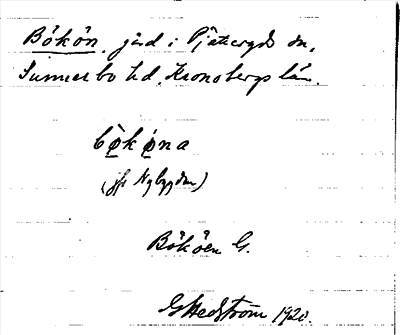 Bökön, gård i Pjätteryds sn,
Sunnerbo hd, Kronobergs län.
bö̀kö̀na
(jfr Nybygden)
Bököen G.
G Hedström 1920.